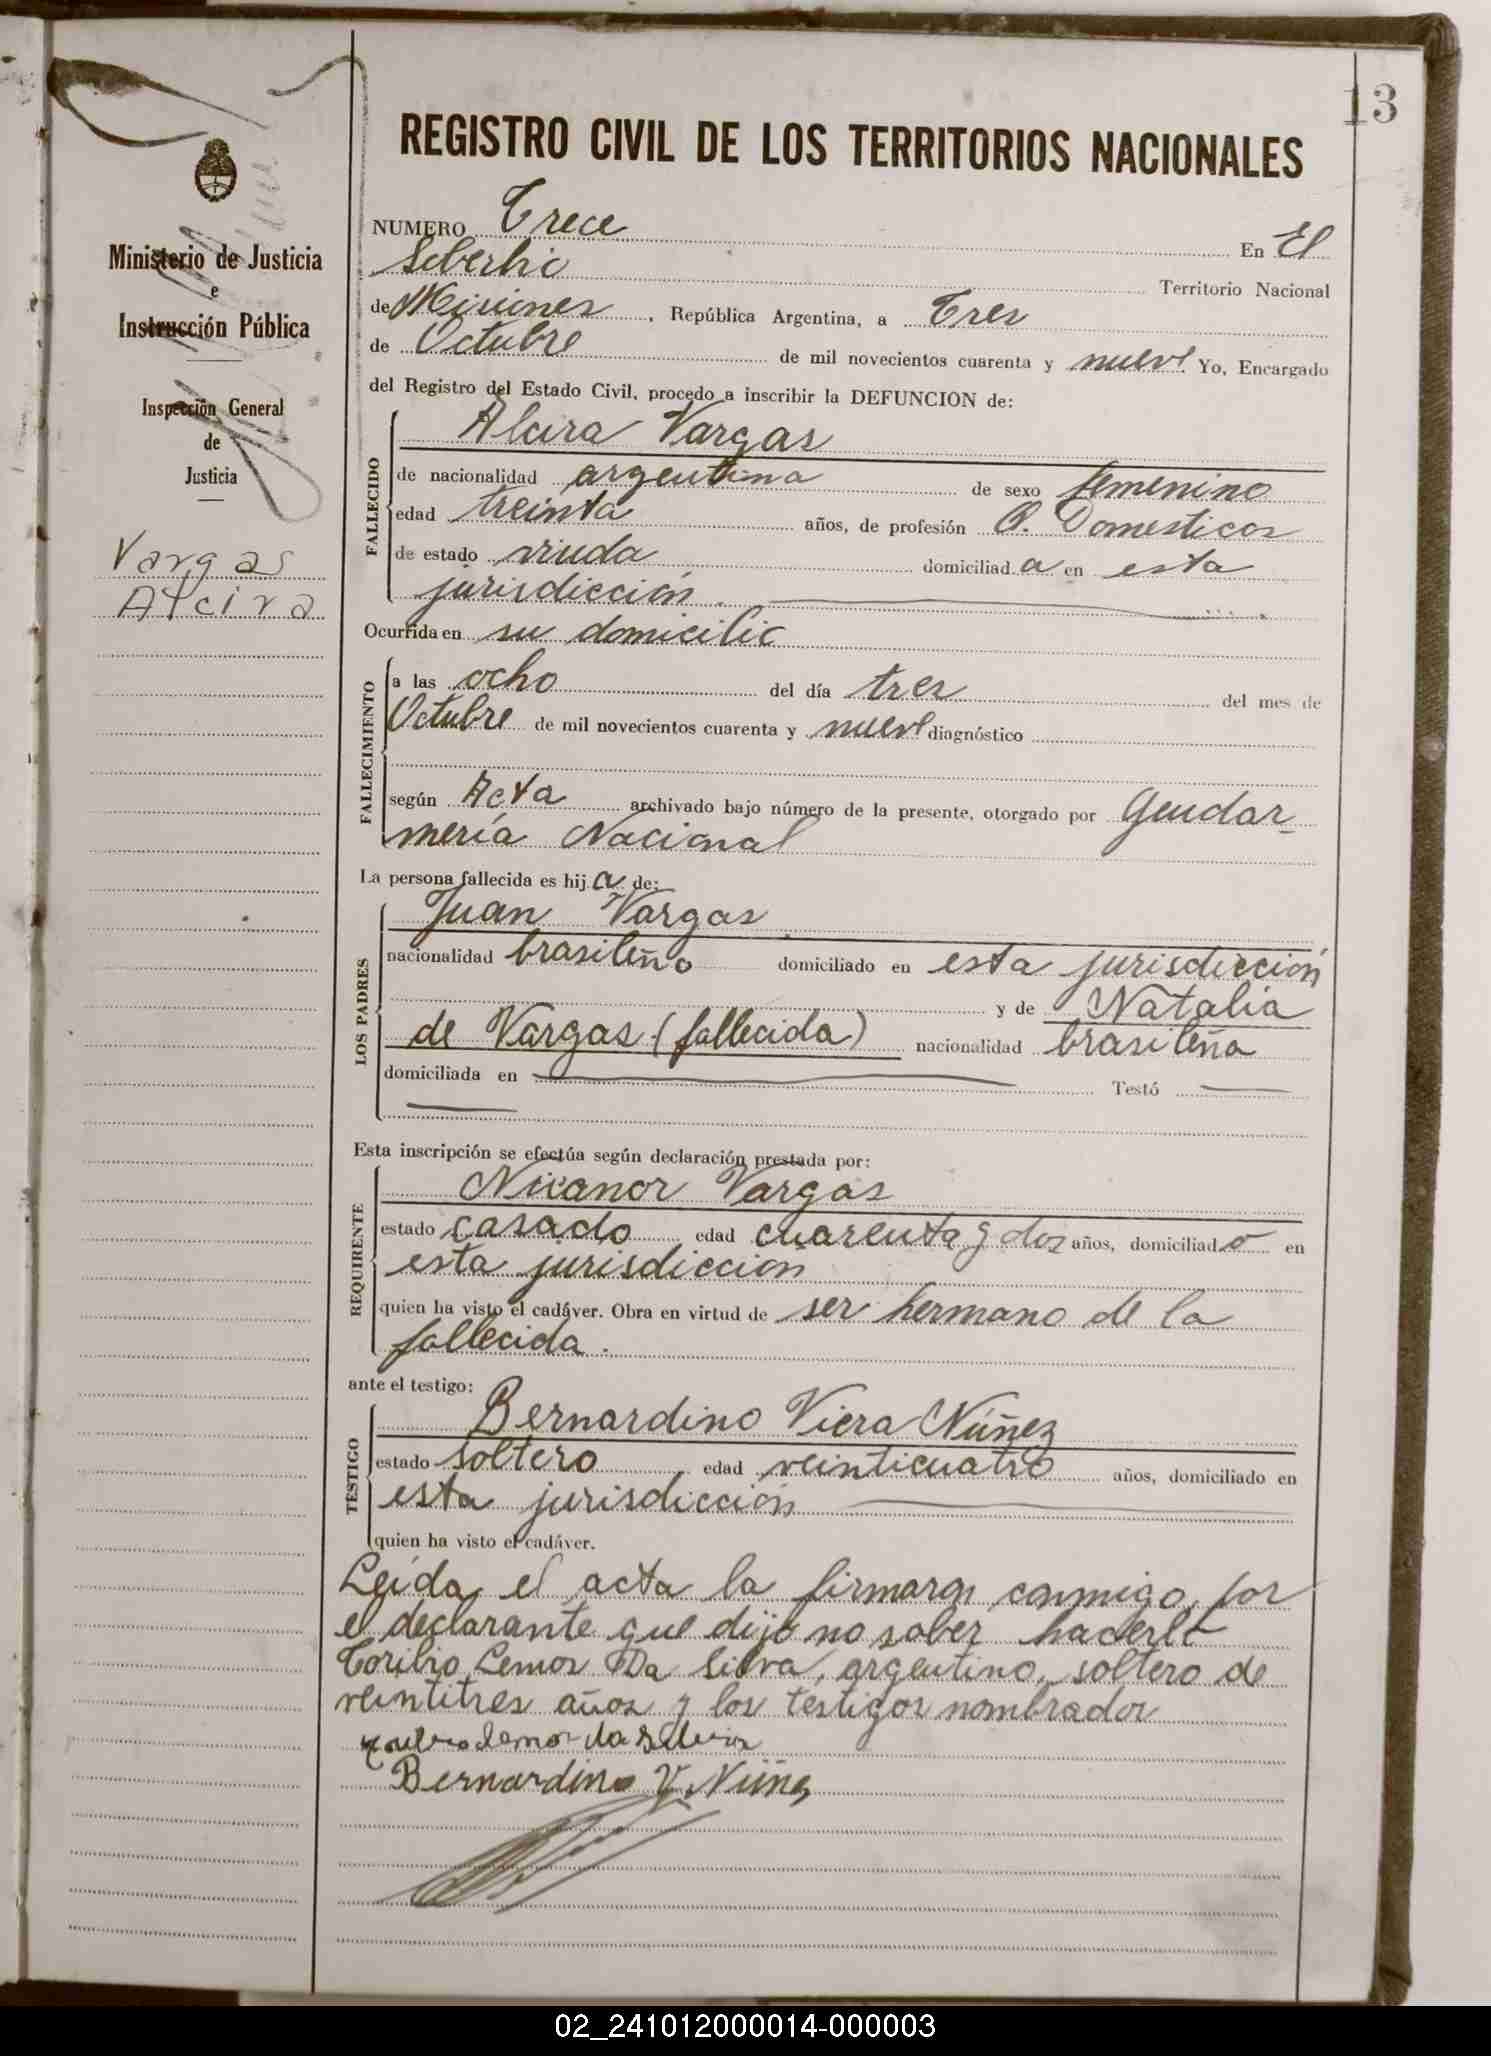 13
REGISTRO CIVIL DE LOS TERRITORIOS NACIONALES
Ministerio de Justicia
e
Instrucción Pública
Inspección General
de
Justicia
Vargas
Alcira
NUMERO Trece En El
Soberbio Territorio Nacional
de Misiones, República Argentina, a Tres
de Octubre de mil novecientos cuarenta y nueve Yo, Encargado
del Registro del Estado Civil, procedo a inscribir la DEFUNCION de:
FALLECIDO
Alcira Vargas
de nacionalidad argentina de sexo femenino
edad treinta años, de profesión Q. Domesticos
de estado viuda domiciliad a en esta
jurisdicción.
Ocurrida en su domicilio
FALLECIMIENTO
a las ocho del día tres del mes de
Octubre de mil novecientos cuarenta y nueve diagnóstico
según Acta archivado bajo número de la presente, otorgado por Gendar-
mería Nacional
La persona fallecida es hij a de:
LOS PADRES
Juan Vargas
nacionalidad brasileño domiciliado en esta jurisdicción
y de Natalia
de Vargas (fallecida) nacionalidad brasileña
domiciliada en Testó
Esta inscripción se efectúa según declaración prestada por:
REQUIRENTE
Nicanor Vargas
estado casado edad cuarenta y dos años, domiciliad o en
esta jurisdiccion
quien ha visto el cadáver. Obra en virtud de ser hermano de la
fallecida.
ante el testigo:
TESTIGO
Bernardino Viera Núñez
estado soltero edad veinticuatro años, domiciliado en
esta jurisdicción
quien ha visto el cadáver.
Leída el acta la firmaron conmigo, por
el declarante que dijo no saber hacerlo
Toribio Lemos Da Silva, argentino, soltero de
veintitres años y los testigos nombrados
Toribio Lemos da Silva
Bernardino V. Núñez
02_241012000014-000003